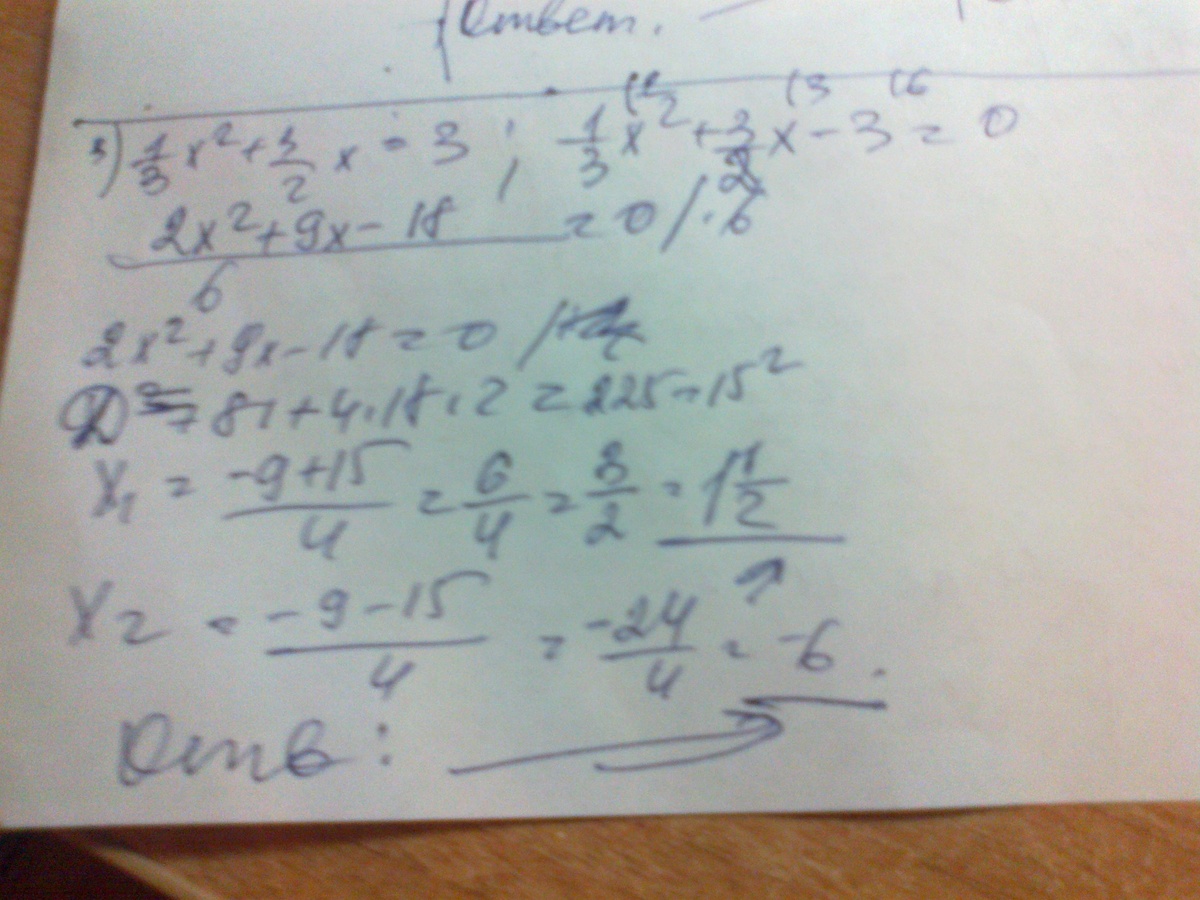 Ответ.
3) 1/3 x² + 3/2 x = 3 ; 1/3 x² (2 + 3/2 x (3 - 3 (6 = 0
(2x² + 9x - 18)/6 = 0 / · 6
2x² + 9x - 18 = 0 /
D = 81 + 4 · 18 · 2 = 225 = 15²
x₁ = (-9 + 15)/4 = 6/4 = 3/2 = 1 1/2
x₂ = (-9 - 15)/4 = -24/4 = -6.
Отв: